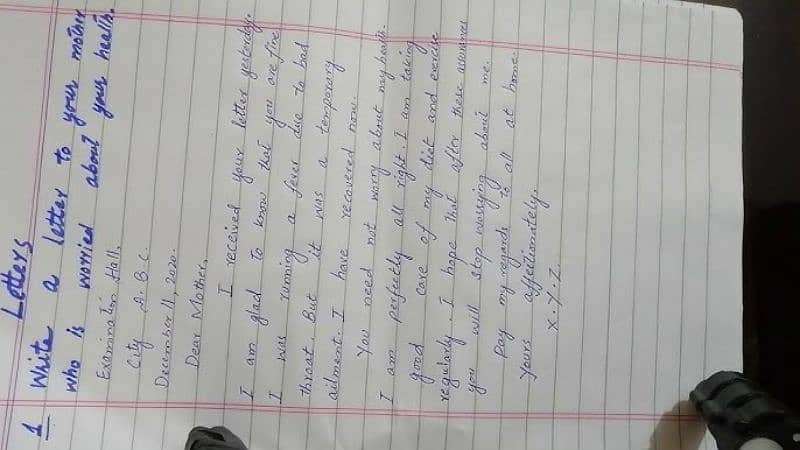 Letters
1 Write a letter to your mother
who is worried about your health.
Examination Hall,
City A.B.C.
December 11, 2020.
Dear Mother,
I received your letter yesterday.
I am glad to know that you are fine
I was running a fever due to bad
throat. But it was a temporary
ailment. I have recovered now.
You need not worry about my health.
I am perfectly all right. I am taking
good care of my diet and exercise
regularly. I hope that after these assurances
you will stop worrying about me.
Pay my regards to all at home.
Yours affectionately,
X.Y.Z.